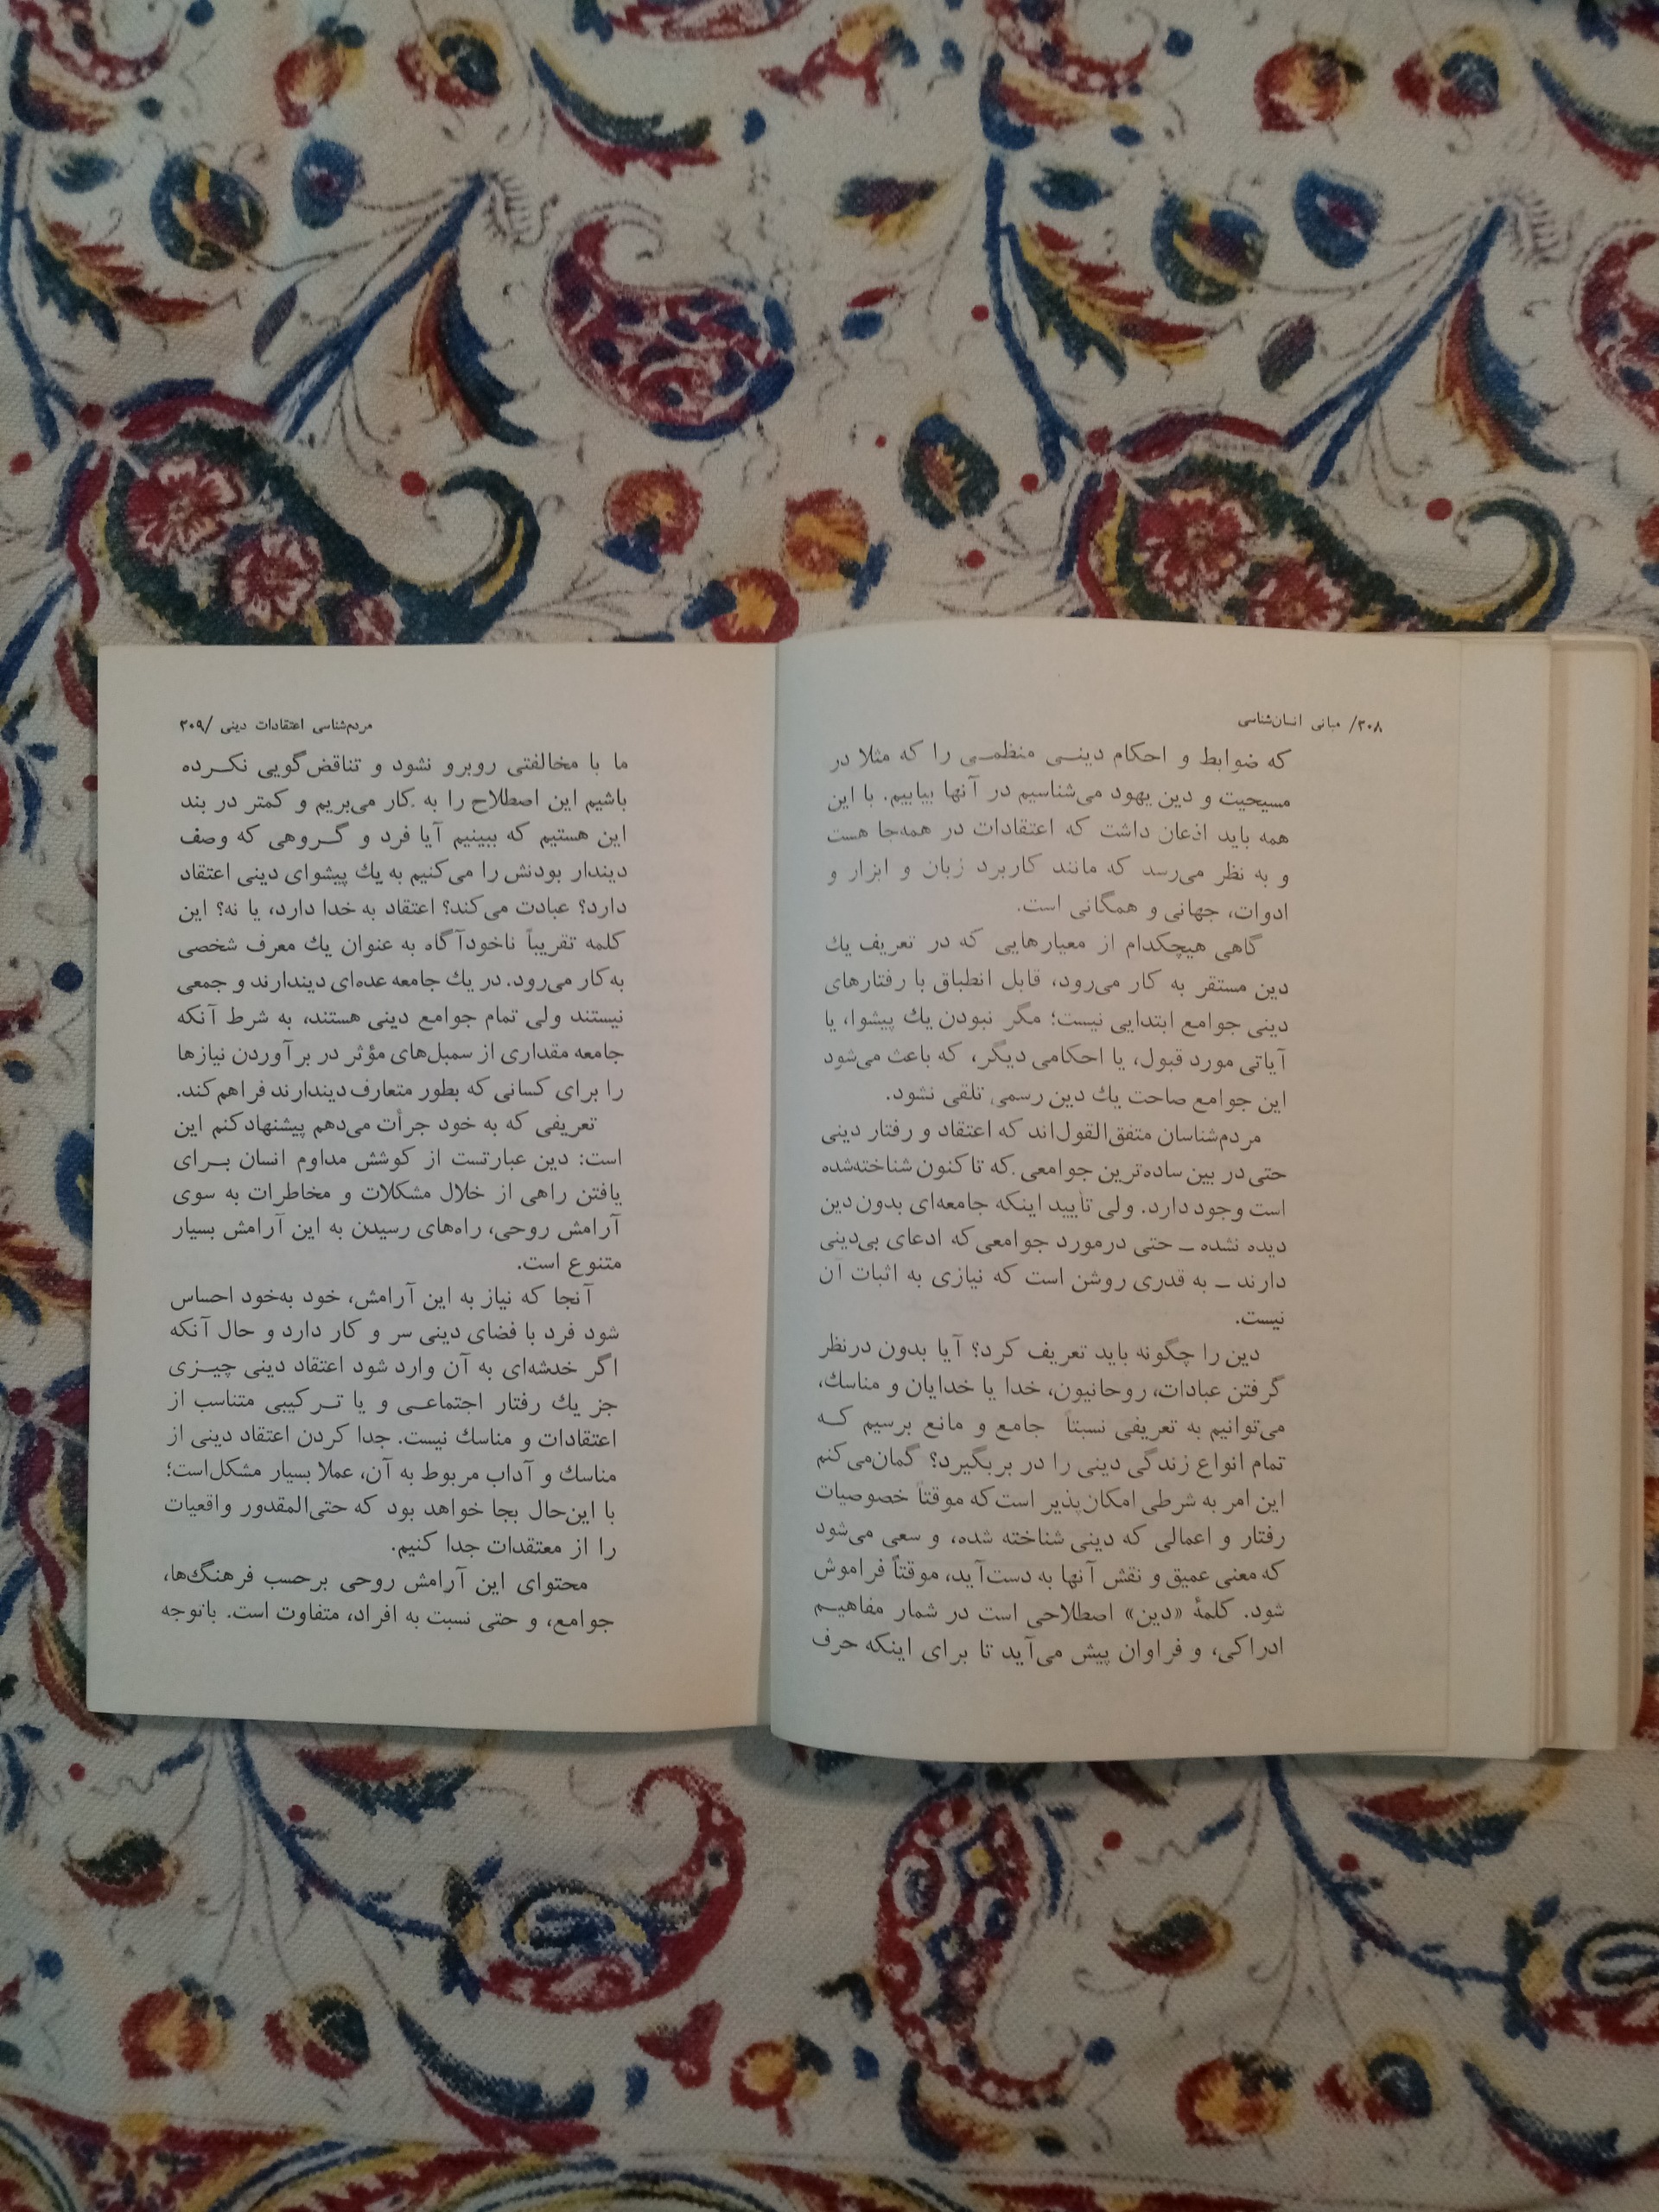 ۲۰۸/ مبانی انسان‌شناسی
که ضوابط و احکام دینی منظمی را که مثلا در
مسیحیت و دین یهود می‌شناسیم در آنها بیابیم. با این
همه باید اذعان داشت که اعتقادات در همه‌جا هست
و به نظر می‌رسد که مانند کاربرد زبان و ابزار و
ادوات، جهانی و همگانی است.
گاهی هیچکدام از معیارهایی که در تعریف یك
دین مستقر به کار می‌رود، قابل انطباق با رفتارهای
دینی جوامع ابتدایی نیست؛ مگر نبودن یك پیشوا، یا
آیاتی مورد قبول، یا احکامی دیگر، که باعث می‌شود
این جوامع صاحت یك دین رسمی تلقی نشود.
مردم‌شناسان متفق‌القول‌اند که اعتقاد و رفتار دینی
حتی در بین ساده‌ترین جوامعی که تاکنون شناخته‌شده
است وجود دارد. ولی تأیید اینکه جامعه‌ای بدون دین
دیده نشده ــ حتی درمورد جوامعی‌که ادعای بی‌دینی
دارند ــ به قدری روشن است که نیازی به اثبات آن
نیست.
دین را چگونه باید تعریف کرد؟ آیا بدون درنظر
گرفتن عبادات، روحانیون، خدا یا خدایان و مناسك،
می‌توانیم به تعریفی نسبتاً جامع و مانع برسیم که
تمام انواع زندگی دینی را در بربگیرد؟ گمان‌می‌کنم
این امر به شرطی امکان‌پذیر است‌که موقتاً خصوصیات
رفتار و اعمالی که دینی شناخته شده، و سعی می‌شود
که معنی عمیق و نقش آنها به دست‌آید، موقتاً فراموش
شود. کلمهٔ «دین» اصطلاحی است در شمار مفاهیم
ادراکی، و فراوان پیش می‌آید تا برای اینکه حرف
مردم‌شناسی اعتقادات دینی /۲۰۹
ما با مخالفتی روبرو نشود و تناقض‌گویی نکرده
باشیم این اصطلاح را به کار می‌بریم و کمتر در بند
این هستیم که ببینیم آیا فرد و گروهی که وصف
دیندار بودنش را می‌کنیم به یك پیشوای دینی اعتقاد
دارد؟ عبادت می‌کند؟ اعتقاد به خدا دارد، یا نه؟ این
کلمه تقریباً ناخودآگاه به عنوان یك معرف شخصی
به‌کار می‌رود. در یك جامعه عده‌ای دیندارند و جمعی
نیستند ولی تمام جوامع دینی هستند، به شرط آنکه
جامعه مقداری از سمبل‌های مؤثر در برآوردن نیازها
را برای کسانی که بطور متعارف دیندارند فراهم‌کند.
تعریفی که به خود جرأت می‌دهم پیشنهاد کنم این
است: دین عبارتست از کوشش مداوم انسان برای
یافتن راهی از خلال مشکلات و مخاطرات به سوی
آرامش روحی، راه‌های رسیدن به این آرامش بسیار
متنوع است.
آنجا که نیاز به این آرامش، خود به‌خود احساس
شود فرد با فضای دینی سر و کار دارد و حال آنکه
اگر خدشه‌ای به آن وارد شود اعتقاد دینی چیزی
جز یك رفتار اجتماعی و یا ترکیبی متناسب از
اعتقادات و مناسك نیست. جدا کردن اعتقاد دینی از
مناسك و آداب مربوط به آن، عملا بسیار مشکل‌است؛
با این‌حال بجا خواهد بود که حتی‌المقدور واقعیات
را از معتقدات جدا کنیم.
محتوای این آرامش روحی برحسب فرهنگ‌ها،
جوامع، و حتی نسبت به افراد، متفاوت است. باتوجه